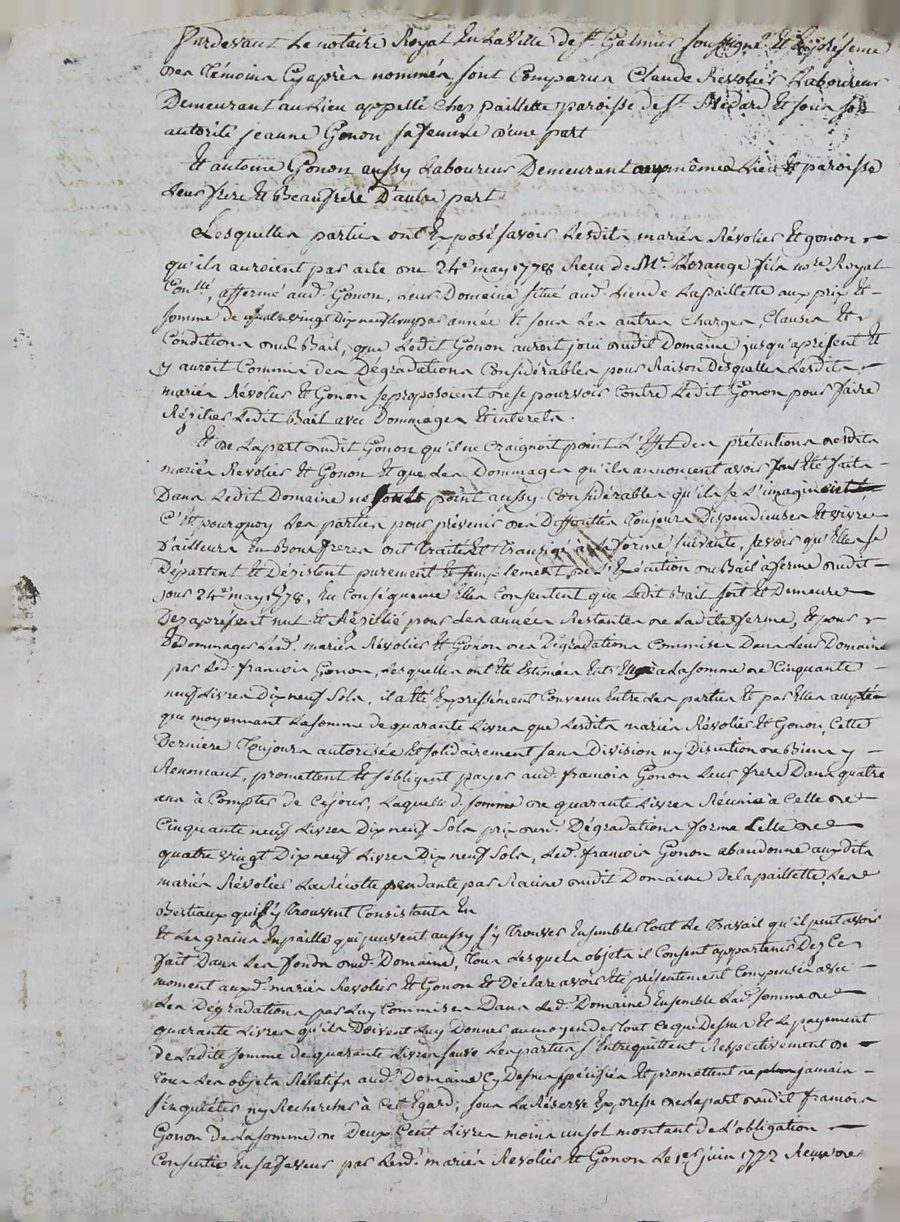 Pardevant Le notaire Royal En La Ville de St. Galmier soussigné Et En présence
des témoins Cyaprès nommés sont Comparus Claude Révolier Laboureur
Demeurant au Lieu appellé Chez paillette paroisse de St. Médard Et sous son
autorité jeanne Gonon sa femme d'une part
Et antoine Gonon aussy Laboureur Demeurant aux même Lieu Et paroisse
Leur frere Et Beaufrere D'autre part
Lesquelles parties ont Exposé savoir Lesdits mariés Révolier Et Gonon
qu'ils auroient par acte du 24e. may 1778 Recu de Me. Lorange fils nore Royal
Conlle, affermé aud. Gonon, Leur Domaine situé aud. Lieu de Lapaillette aux prix Et
somme de quatrevingt Dix neuf Livres par année Et sous Les autres Charges, Clauses Et
Conditions dud. Bail, que Ledit Gonon auroit joui dudit Domaine jusqu'apresent Et
y auroit Commis des Dégradations Considérables pour Raison Desquelles Lesdits
mariés Révolier Et Gonon se proposoient de se pourvoir Contre Ledit Gonon pour faire
Résilier Ledit Bail avec Dommages Et interets.
Et de La part dudit Gonon qu'il ne Craignoit point L'Effet des prétentions desdits
mariés Révolier Et Gonon Et que Les Dommages qu'ils annoncent avoir Eté faits
Dans Ledit Domaine ne sont point aussy Considérables qu'ils se L'imaginent
C'Est pourquoy Les parties pour prévenir des Difficultés toujours Dispendieuses Et vivre
D'ailleurs En Bons freres ont traité Et transigé à la forme suivante, savoir qu'Elles se
Départent Et Désistent purement Et simplement de L'Exécution du Bail à ferme dudit
jour 24e. may 1778, En Conséquence Elles Consentent que Ledit Bail soit Et Demeure
Dez apresent nul Et Résillié pour Les années Restantes de Ladite ferme, Et pour
Dédommager Lesd. mariés Révolier Et Gonon des Dégradations Commises Dans Leur Domaine
par Led. françois Gonon, Lesquelles ont Eté Estimées Entr'Elles à La somme de Cinquante
neuf Livres Dix neuf Sols, il a Eté Expressément Convenu Entre Les parties Et par Elles
que moyennant La somme de quarante Livres que Lesdits mariés Révolier Et Gonon, Cette
Derniere toujours autorisée Et solidairement sans Division ny Discution de Biens y
Renoncant, promettent Et s'obligent payer aud. françois Gonon Leur frere Dans quatre
ans à Compter de Cejour, Laquelle d. somme de quarante Livres Réunie à Celle de
Cinquante neuf Livres Dix neuf Sols prix desd. Dégradations forme Celle de
quatre vingt Dix neuf Livres Dix neuf Sols, Led. françois Gonon abandonne auxdits
mariés Révolier La Récolte pendante par Racine dudit Domaine de la paillette, Les
Bestiaux qui s'y trouvent Consistants En
Et Les grains En paille qui peuvent aussy s'y trouver Ensemble tout Le travail qu'il peut avoir
fait Dans Les fonds dud. Domaine, tous Lesquels objets il Consent appartenir Dez Ce
moment auxd. mariés Révolier Et Gonon Et Déclare avoir Eté présentement Compensés avec
Les Dégradations par Luy Commises Dans Led. Domaine Ensemble Lad. somme de
quarante Livres qu'ils Doivent Luy Donner au moyen de tout Ce que Dessus Et Le payement
de Ladite somme de quarante Livres sauve Les parties s'Entrequittent Respectivement de
tous Les objets Rélatifs aud. Domaine Cy Dessus spécifiés Et promettent ne jamais
s'inquiéter ny Rechercher à Cet Egard; sous La Réserve Expresse de La part dudit françois
Gonon de La somme de Deux Cent Livres moins un sol montant de L'obligation
Consentie En sa faveur par Lesd. mariés Révolier Et Gonon Le 1er juin 1772 Reçue de